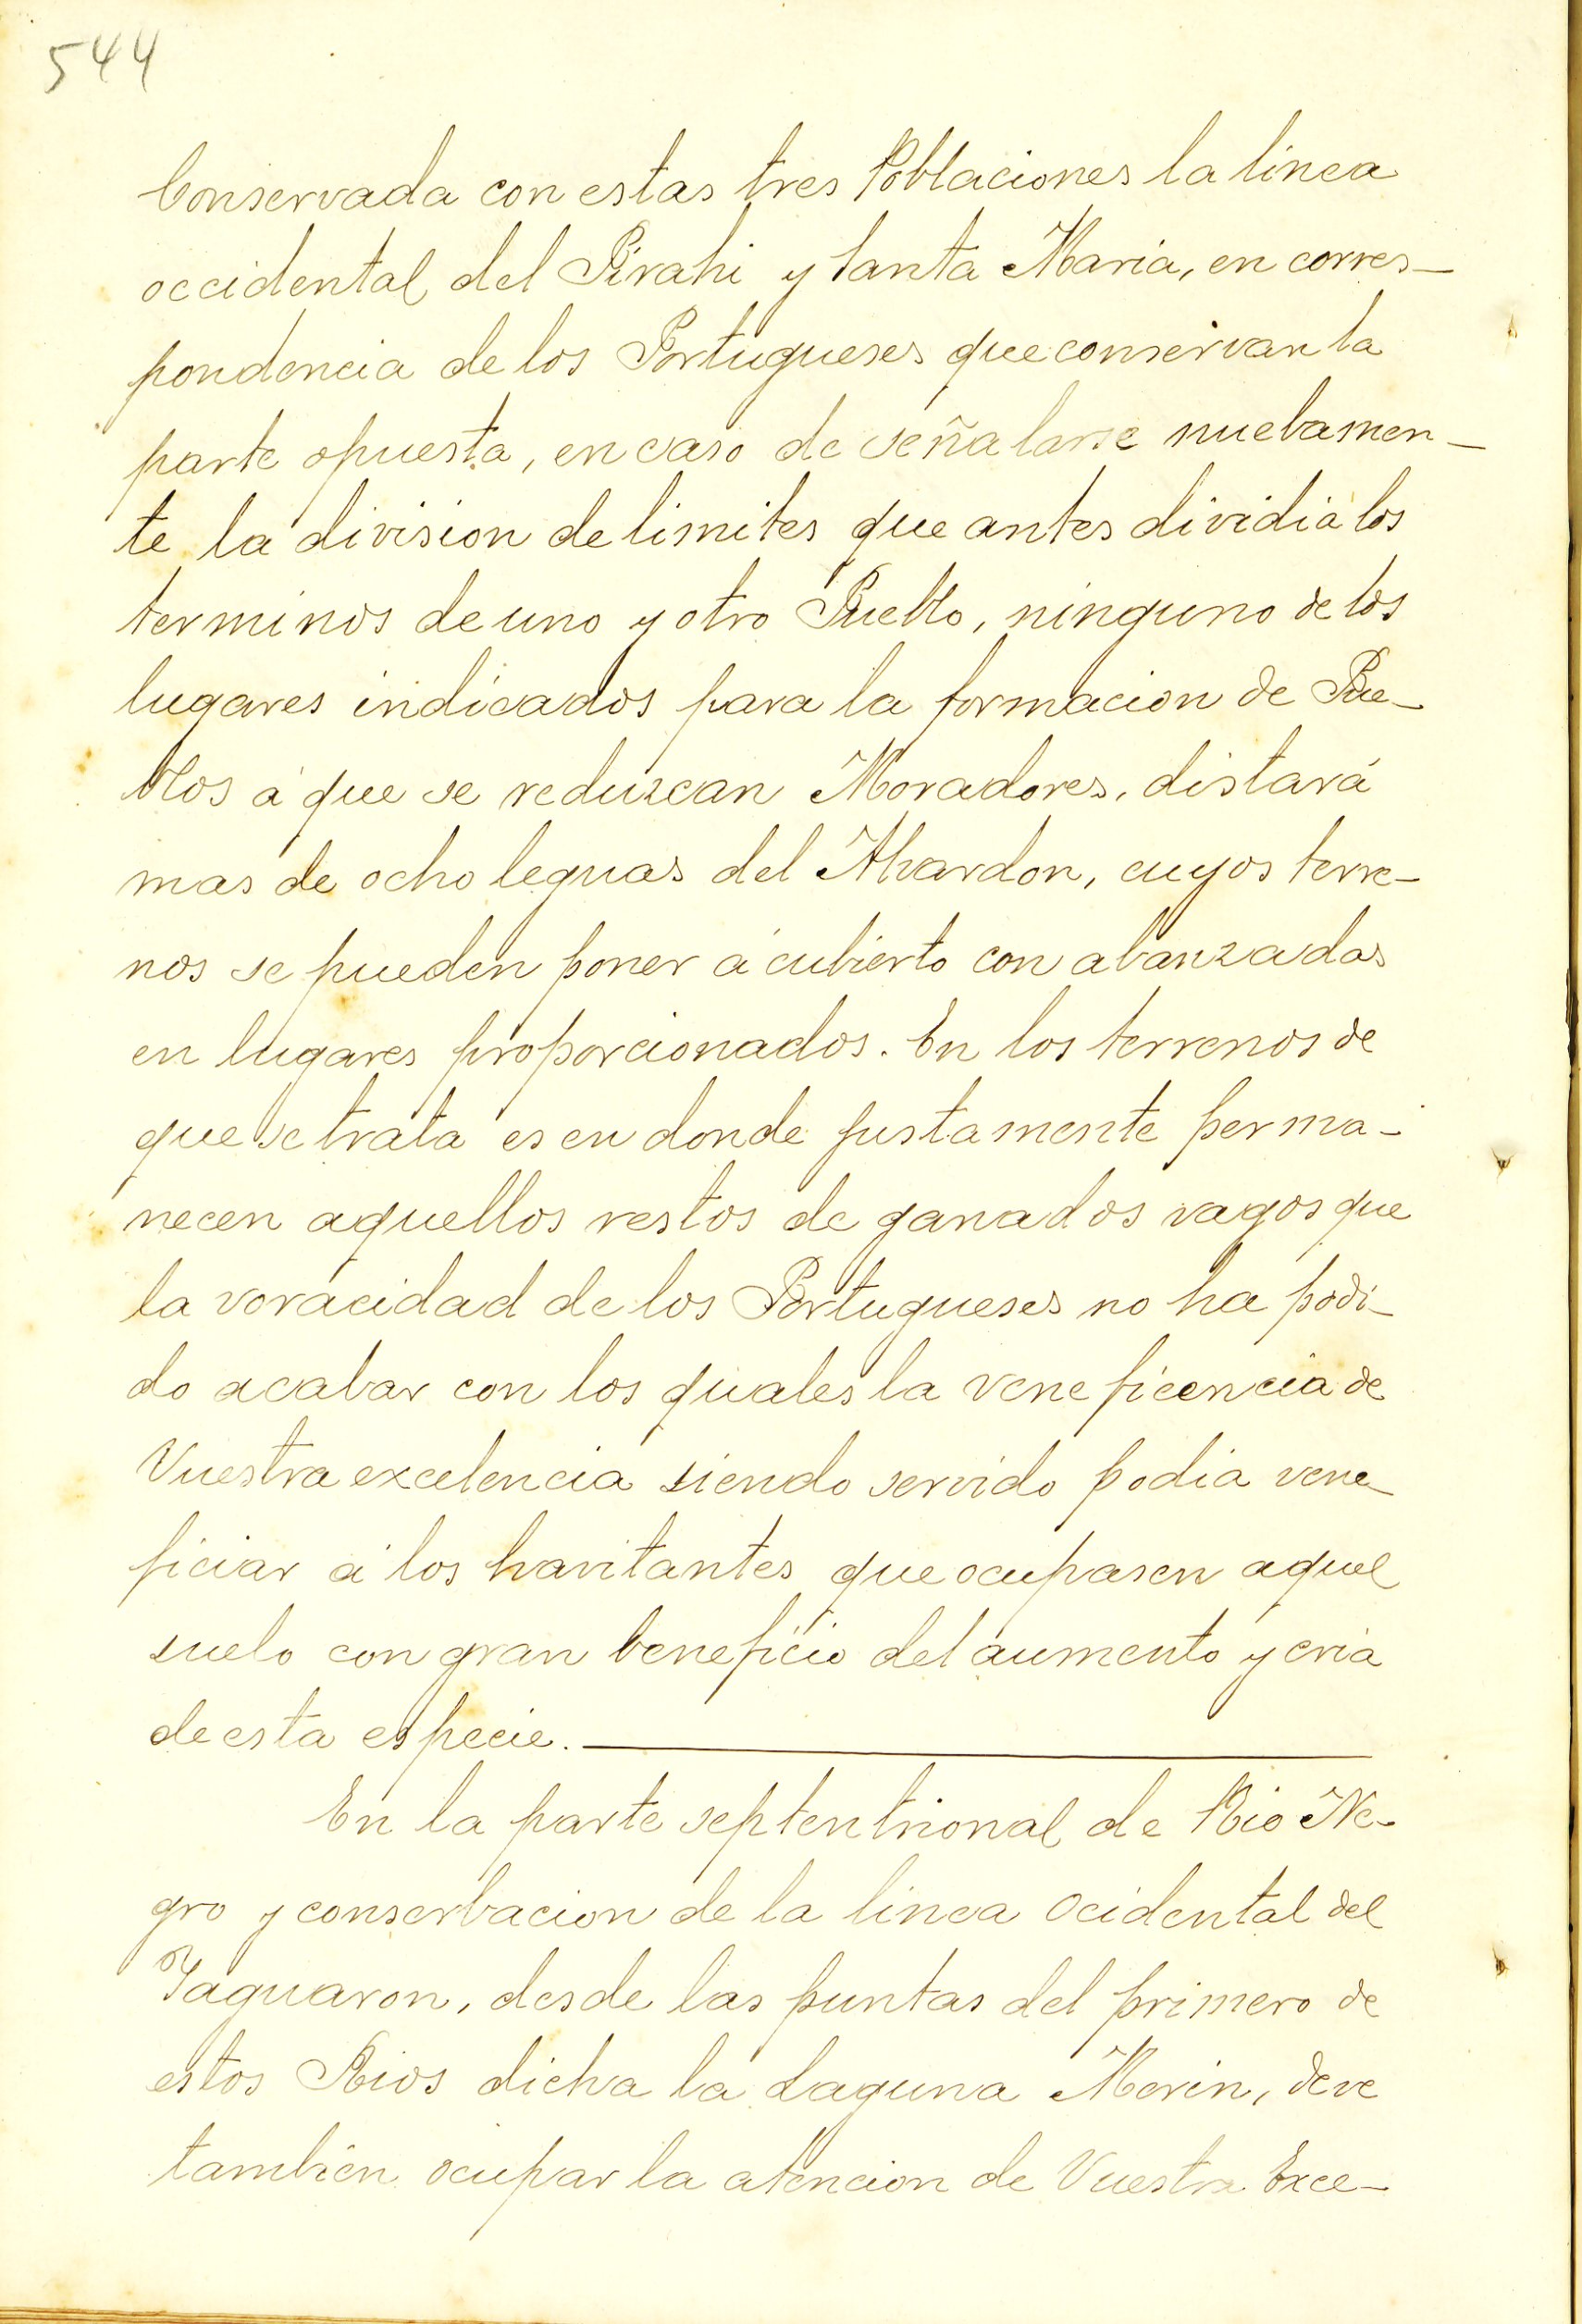 544
Conservada con estas tres Poblaciones la linea
occidental del Pirahi y Santa Maria, en corres-
pondencia de los Portugueses que conservan la
parte opuesta, en caso de señalarse nuebamen-
te la division de limites que antes dividia los
terminos de uno y otro Pueblo, ninguno de los
lugares indicados para la formacion de Pue-
blos á que se reduzcan Moradores, distará
mas de ocho leguas del Albardon, cuyos terre-
nos se pueden poner á cubierto con abanzadas
en lugares proporcionados. En los terrenos de
que se trata es en donde justamente perma-
necen aquellos restos de ganados vagos que
la voracidad de los Portugueses no ha podi-
do acabar con los quales la veneficencia de
Vuestra excelencia siendo servido podia vene-
ficiar á los havitantes que ocupasen aquel
suelo con gran beneficio del aumento y cria
de esta especie.
En la parte septentrional de Rio Ne-
gro y conserbacion de la linea ocidental del
Yaguaron, desde las puntas del primero de
estos Rios dicha la Laguna Merin, deve
tambien ocupar la atencion de Vuestra Exce-